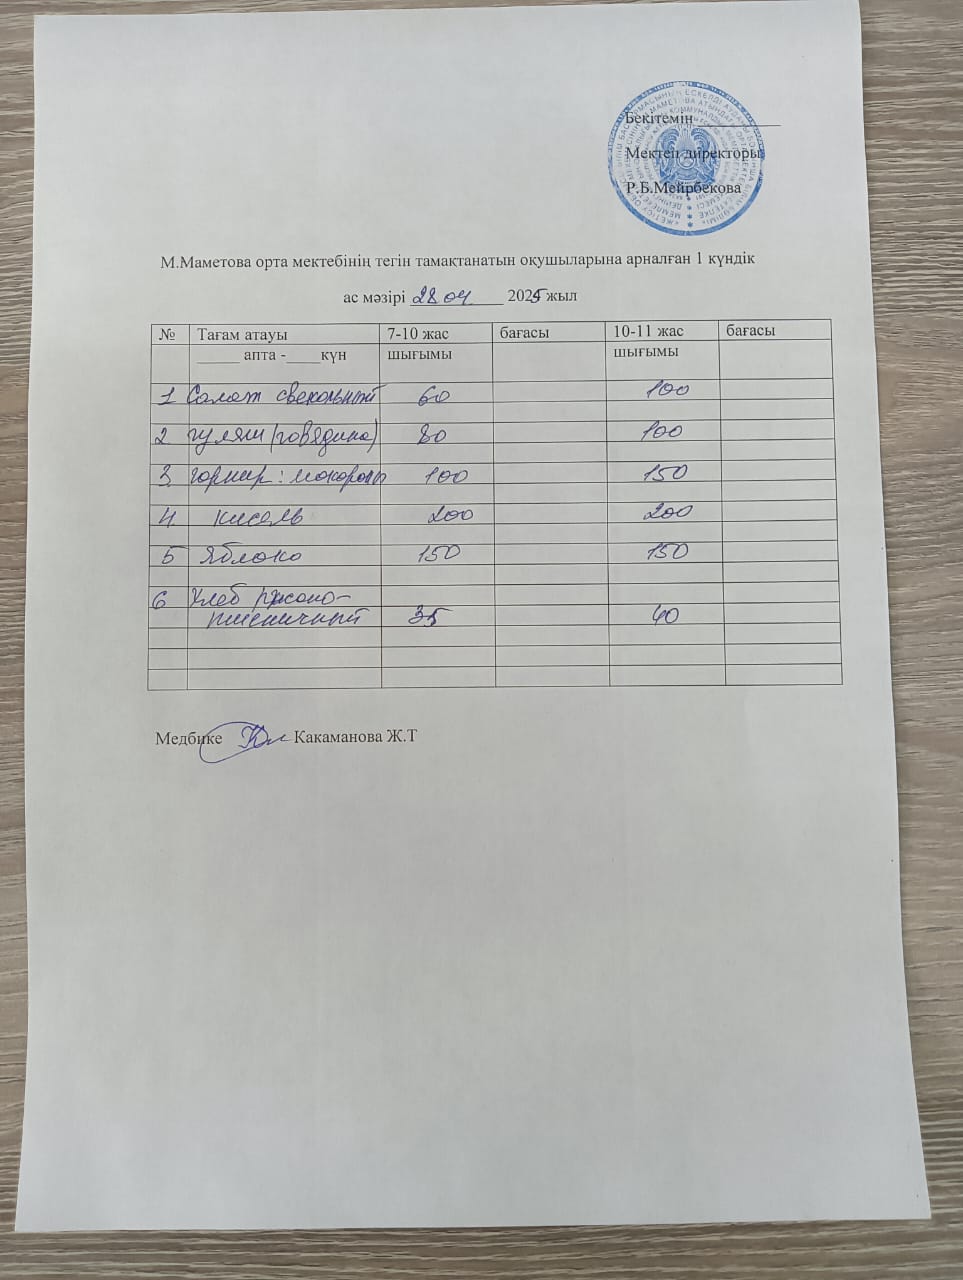 Бекітемін__________
Мектеп директоры
Р.Б.Мейрбекова
М.Маметова орта мектебінің тегін тамақтанатын оқушыларына арналған 1 күндік
ас мәзірі 28 04 2025 жыл
№ Тағам атауы 7-10 жас бағасы 10-11 жас бағасы
_____ апта -____күн шығымы шығымы
1 Салат свекольный 60 100
2 гуляш (говядина) 80 100
3 гарнир: макароны 100 150
4 кисель 200 200
5 Яблоко 150 150
6 Хлеб ржано-
пшеничный 35 40
Медбике Какаманова Ж.Т